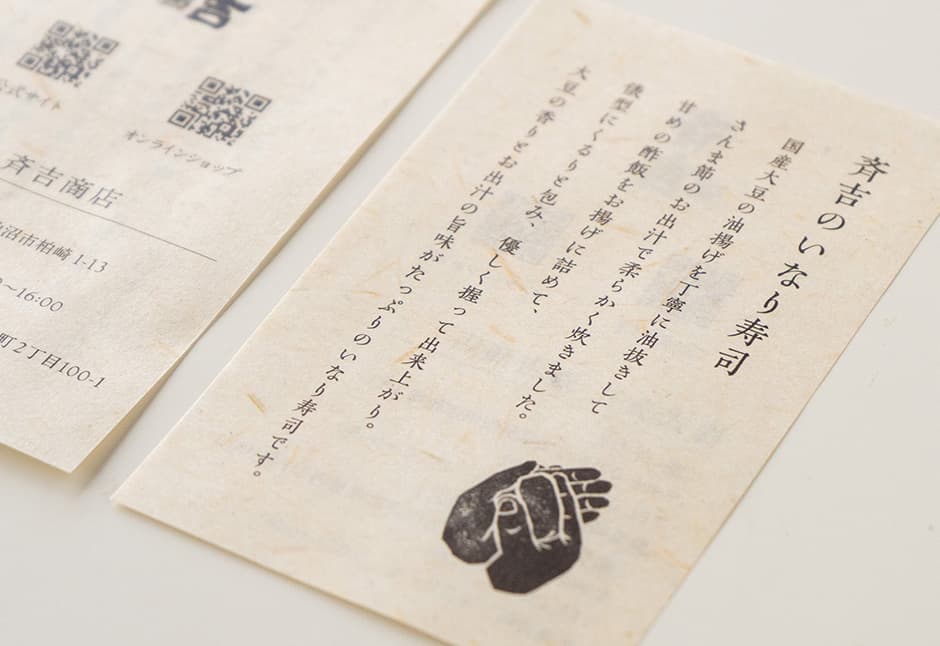 斉吉のいなり寿司
国産大豆の油揚げを丁寧に油抜きして
さんま節のお出汁で柔らかく炊きました。
甘めの酢飯をお揚げに詰めて、
俵型にくるりと包み、優しく握って出来上がり。
大豆の香りとお出汁の旨味がたっぷりのいなり寿司です。
公式サイト
オンラインショップ
斉吉商店
沼市柏崎 1-13
〜16:00
町2丁目100-1